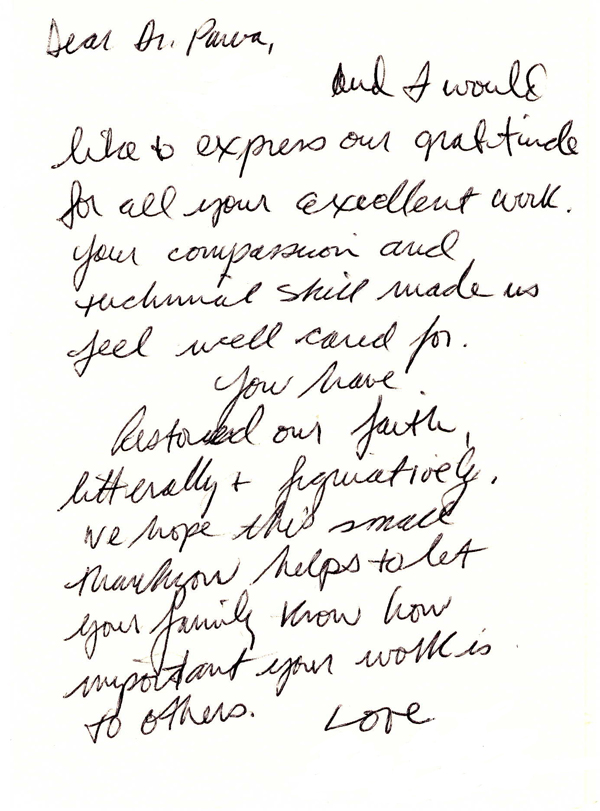 Dear Dr. Parva,
and I would
like to express our gratitude
for all your excellent work.
Your compassion and
technical skill made us
feel well cared for.
You have
Restored our faith,
litterally + figuratively.
We hope this small
thankyou helps to let
your family know how
important your work is
to others. Love